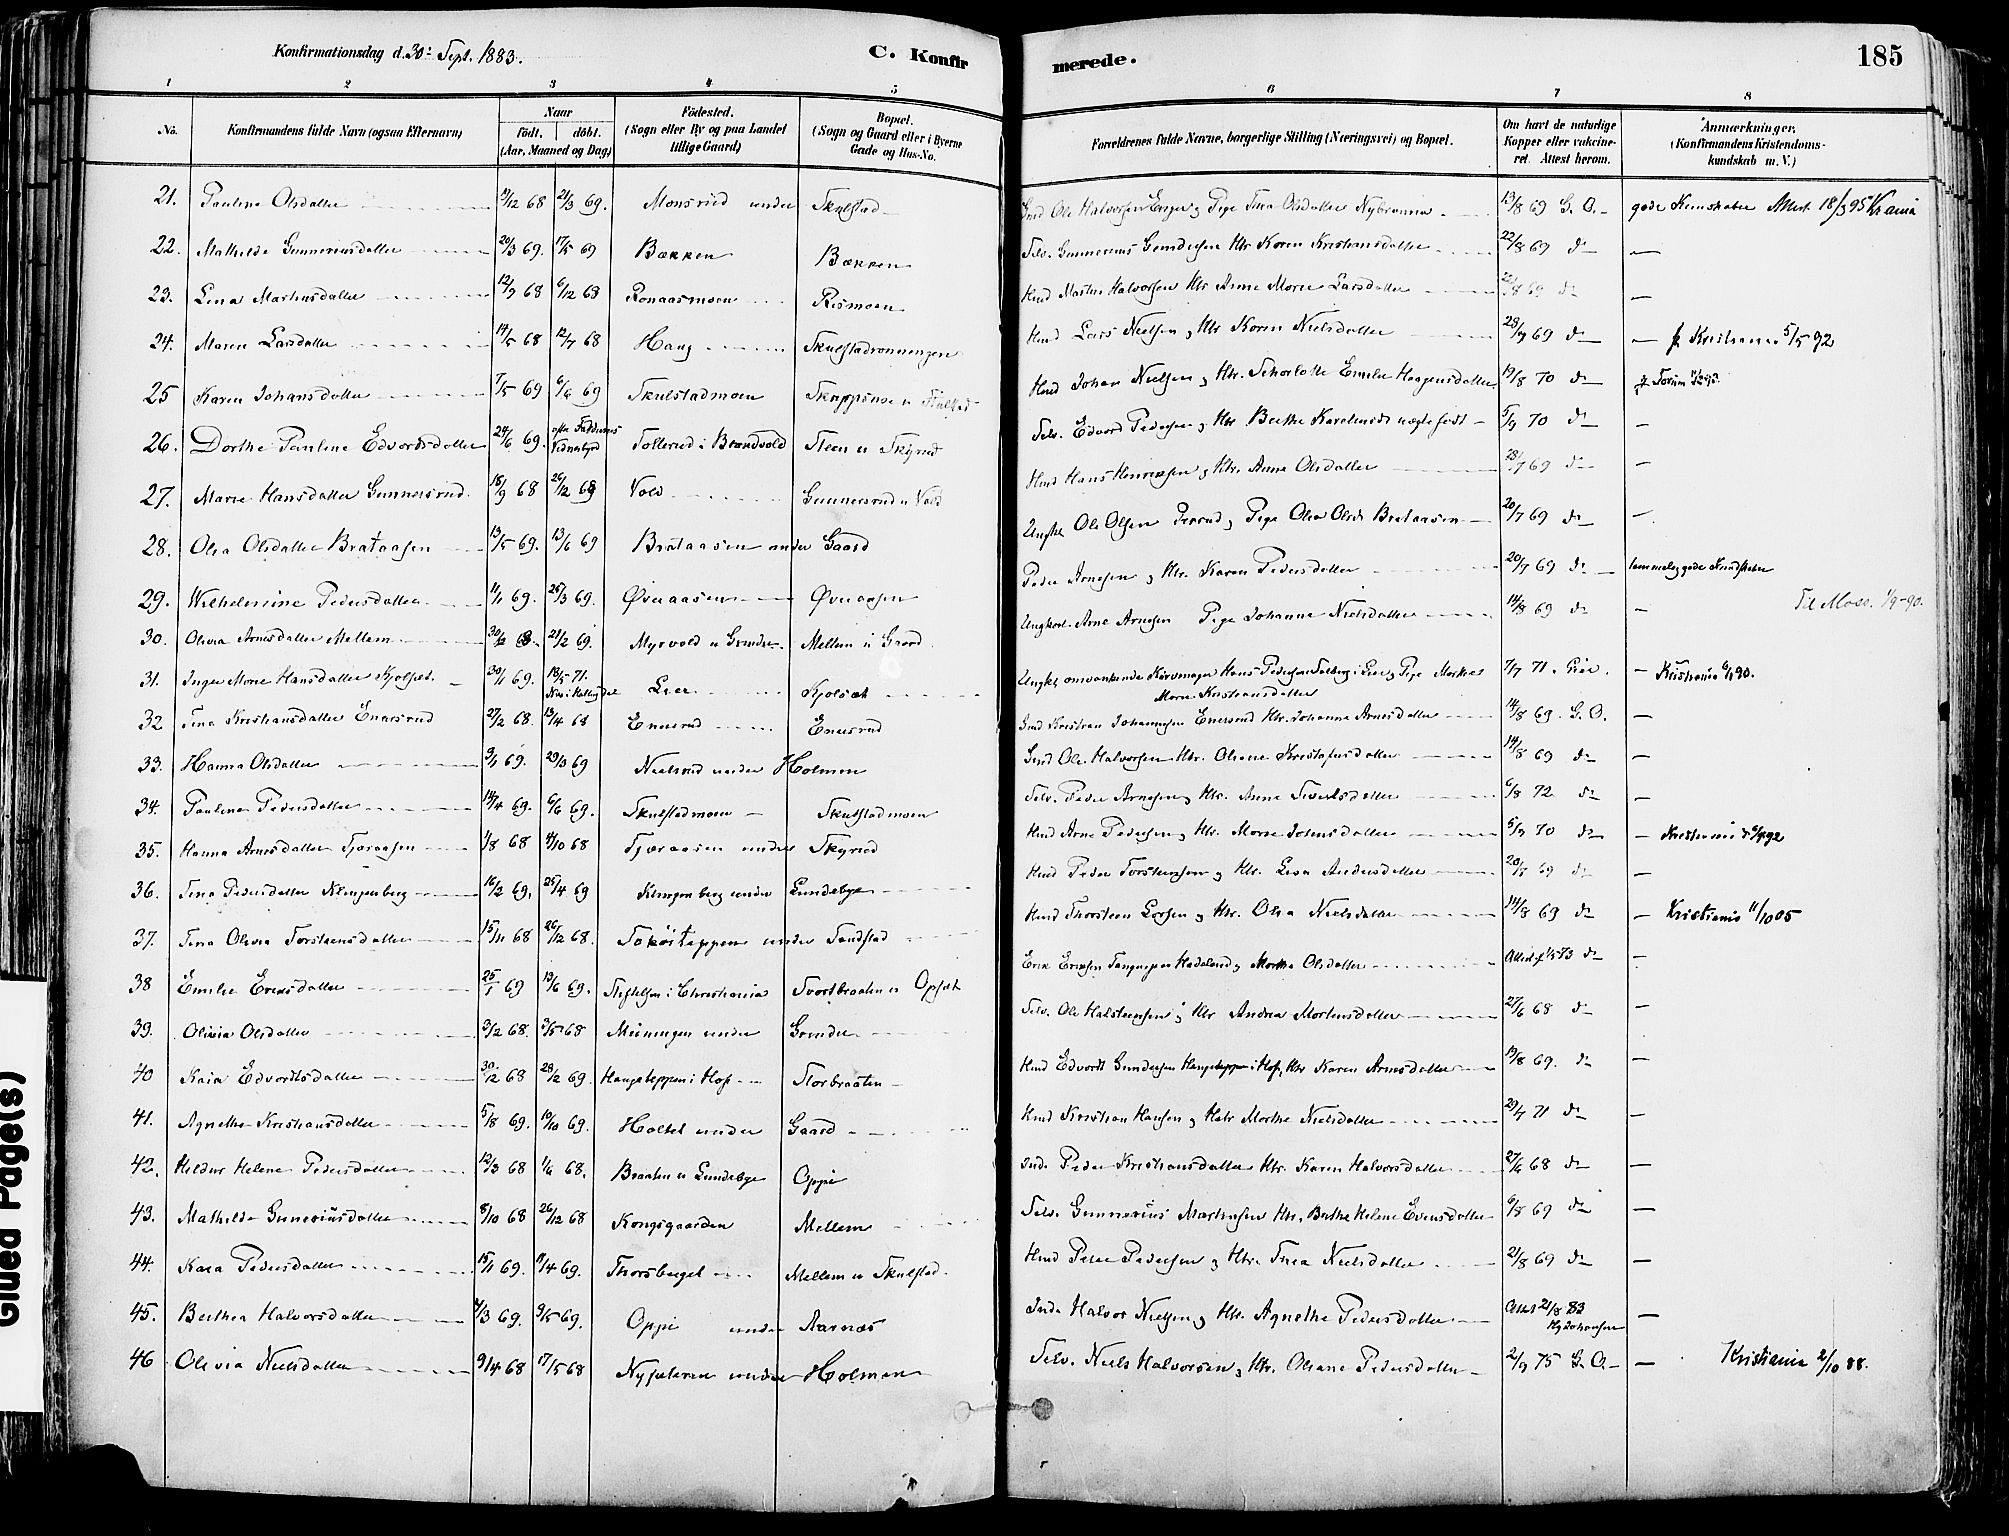 Konfirmationsdag d. 30' Sept. 1883.
C. Konfir
1 2 3 4 5
No. Konfirmandens fulde Navn (ogsaa Efternavn) Naar födt. döbt. (Aar, Maaned og Dag) Födested. (Sogn eller By og paa Landet tillige Gaard) Bopæl. (Sogn og Gaard eller i Byerne Gade og Hus-No.
21. Pauline Olsdatter 68 21/3 69. Monsrud under Skulstad
22. Mathilde Gunneriusdatter 20/3 69. 17/5 69 Bækken Bækken
23. Lina Martinsdatter 12/9 68 6/12 68 Ronaasmoen Rismoen
24. Maren Larsdatter 14/5 68 12/7 68 Haug Skulstadrønningen
25 Karen Johansdatter 7/5 69 6/6 69 Skulstadmoen
26. Dorthe Pauline Edvardsdatter 24/6 69. Tollerud i Brandvold Steen u Skyrud
27. Marie Hansdatter Gunnersrud 18/9 68 26/12 68 Vold Gunnersrud u Vold
28. Olia Olsdatter Brataasen 13/5 69. 13/6 69 Brataasen under Gaard
29. Wilhelmine Pedersdatter 1/1 69. 26/3 69. Øveraasen Øveraasen
30. Olivia Arnesdatter Mellem 21/2 69. Myrvold u Grinder Mellem u Gaard
31. Inger Marie Hansdatter Kjolset 30/1 69. 18/5 71. Lier Kjolset
32 Tina Kristiansdatter Enersrud 27/2 68. 13/4 68 Enersrud Enersrud
33. Hanna Olsdatter 9/1 69. 29/3 69 Neelsrud under Holmen
34. Pauline Pedersdatter 14/4 69. 6/6 69. Skulstadmoen Skulstadmoen
35. Hanna Arnesdatter Tjæraasen 1/8 68 4/10 68 Tjæraasen under Skyrud
36. Tina Pedersdatter Klingenberg 16/2 69. 25/4 69 Klingenberg under Lundeby
37. Tina Olivia Torstensdatter 15/11 68 26/12 68. under Sandstad
38 Emilie Eriksdatter 25/1 69 13/6 69. Stiftelsen i Christiania Svartbraaten u Opset
39. Olivia Olsdatter 3/2 68. 3/5 68 Meiningen under Grinder
40 Kaia Edvardtsdatter 30/12 68 28/2 69. Haugeteppen i Hof Storbraaten
41. Agnethe Kristiansdatter 5/8 69. 10/10 69. Holtet under Gaard
42. Hildur Helene Pedersdatter 12/3 68 1/6 68. Braaten u Lundebye Oppi
43. Mathilde Gunneriusdatter 8/10 68 26/12 68 Kongsgaarden Mellem
44. Kaia Pedersdatter 15/1 69. 11/4 69. Thorsberget Mellem u Skulstad.
45. Berthea Halvorsdatter 4/3 69. 9/5 69. Oppi under Aarnæs
46 Olivia Neelsdatter 9/4 68 17/5 68 Nysæteren under Holmen
merede.
185
6 7 8
Forældrenes fulde Navne, borgerlige Stilling (Næringsvei) og Bopæl. Om havt de naturlige Kopper eller vaccineret. Attest herom. Anmærkninger, (Konfirmandens Kristendomskundskab m. V.)
Ole Halvorsen Enger, Pige Thea Olsdatter Nybrænna 13/8 69 G. O. gode Kundskaber Attest 18/3 95 Krania
Selv. Gunnerius Gundersen Htr Karen Kristiansdatter 22/8 69 do —
Hmd Martin Halvorsen Htr Anne Marie Larsdatter 22/8 69 do —
Hmd Lars Nielsen og Htr Karen Nielsdatter 28/9 69 do — Kristiania 5/5 92
Hmd Johan Nielsen og Htr. Scharlotte Emilie Haagensdatter 19/8 70 do
Selv. Edvard Pedersen og Htr Berthe Karelius ægte født 5/9 70 do —
Hmd Hans Henriksen og Htr. Anne Olsdatter 28/7 69 do —
Ungkl Ole Olsen og Pige Olea Olsdr Brataasen 20/7 69 do —
Peder Arnesen og Htr. Karen Pedersdatter 20/7 69 do temmelig gode Kundskaber
Ungkarl Arne Arnesen Pige Johanne Nielsdatter 14/8 69 do — Til Moss. 1/9-90.
Ungkl omvankende Kurvmager Hans Pedersen Solberg i Lier og Pige Marthe Marie Kristiansdatter 7/7 71. Lier. — Kristiania 90.
Kristian Johannesen Enersrud Htr. Johanne Arnesdatter 14/8 69. G. O. —
Ole Halvorsen Htr. Oleane Kristofersdatter 14/8 69 do —
Selv. Peder Arnesen og Htr. Anne Siverlsdatter 6/8 72 do —
Hmd Arne Pedersen og Htr. Marie Johnsdatter 5/9 70 do — Kristiania 92
Hmd Peder Torstensen og Htr. Lisa Andersdatter 20/8 69 do —
Hmd Thorsteen Larsen og Htr. Olia Nielsdatter 14/8 69 do — Kristiania 11/10 05
Erik Eriksen Hadeland og Marthe Olsdatter Attest 73 do —
Selv. Ole Halstensen og Htr Andrea Mortensdatter 27/6 68 do —
Hmd Edvardt Gundersen Haugeteppen i Hof, Htr Karen Arnesdatter 19/8 69. do —
Hmd Kristian Hansen og Htr Marthe Nielsdatter 29/7 71 do —
Inds. Peder Kristiansdatter Htr. Karen Halvorsdatter 27/6 68 do —
Selv. Gunnerius Martinsen Htr. Berthe Helene Evensdatter 6/8 69 do —
Hmd Peder Pedersen og Htr. Thea Nielsdatter 21/8 69 do —
Inds Halvor Nielsen og Htr. Agnethe Pedersdatter Attest 21/8 83 Johansen —
Selv. Niels Halvorsen og Htr. Oleane Pedersdatter 2/9 75 G. O. — Kristiania 2/10 88.
Glued Page(s)